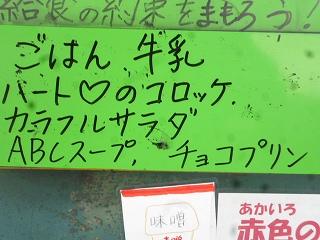 給食の約束をまもろう!
ごはん 牛乳
ハート♡のコロッケ.
カラフルサラダ
ABCスープ, チョコプリン
味噌
あかいろ
赤色の